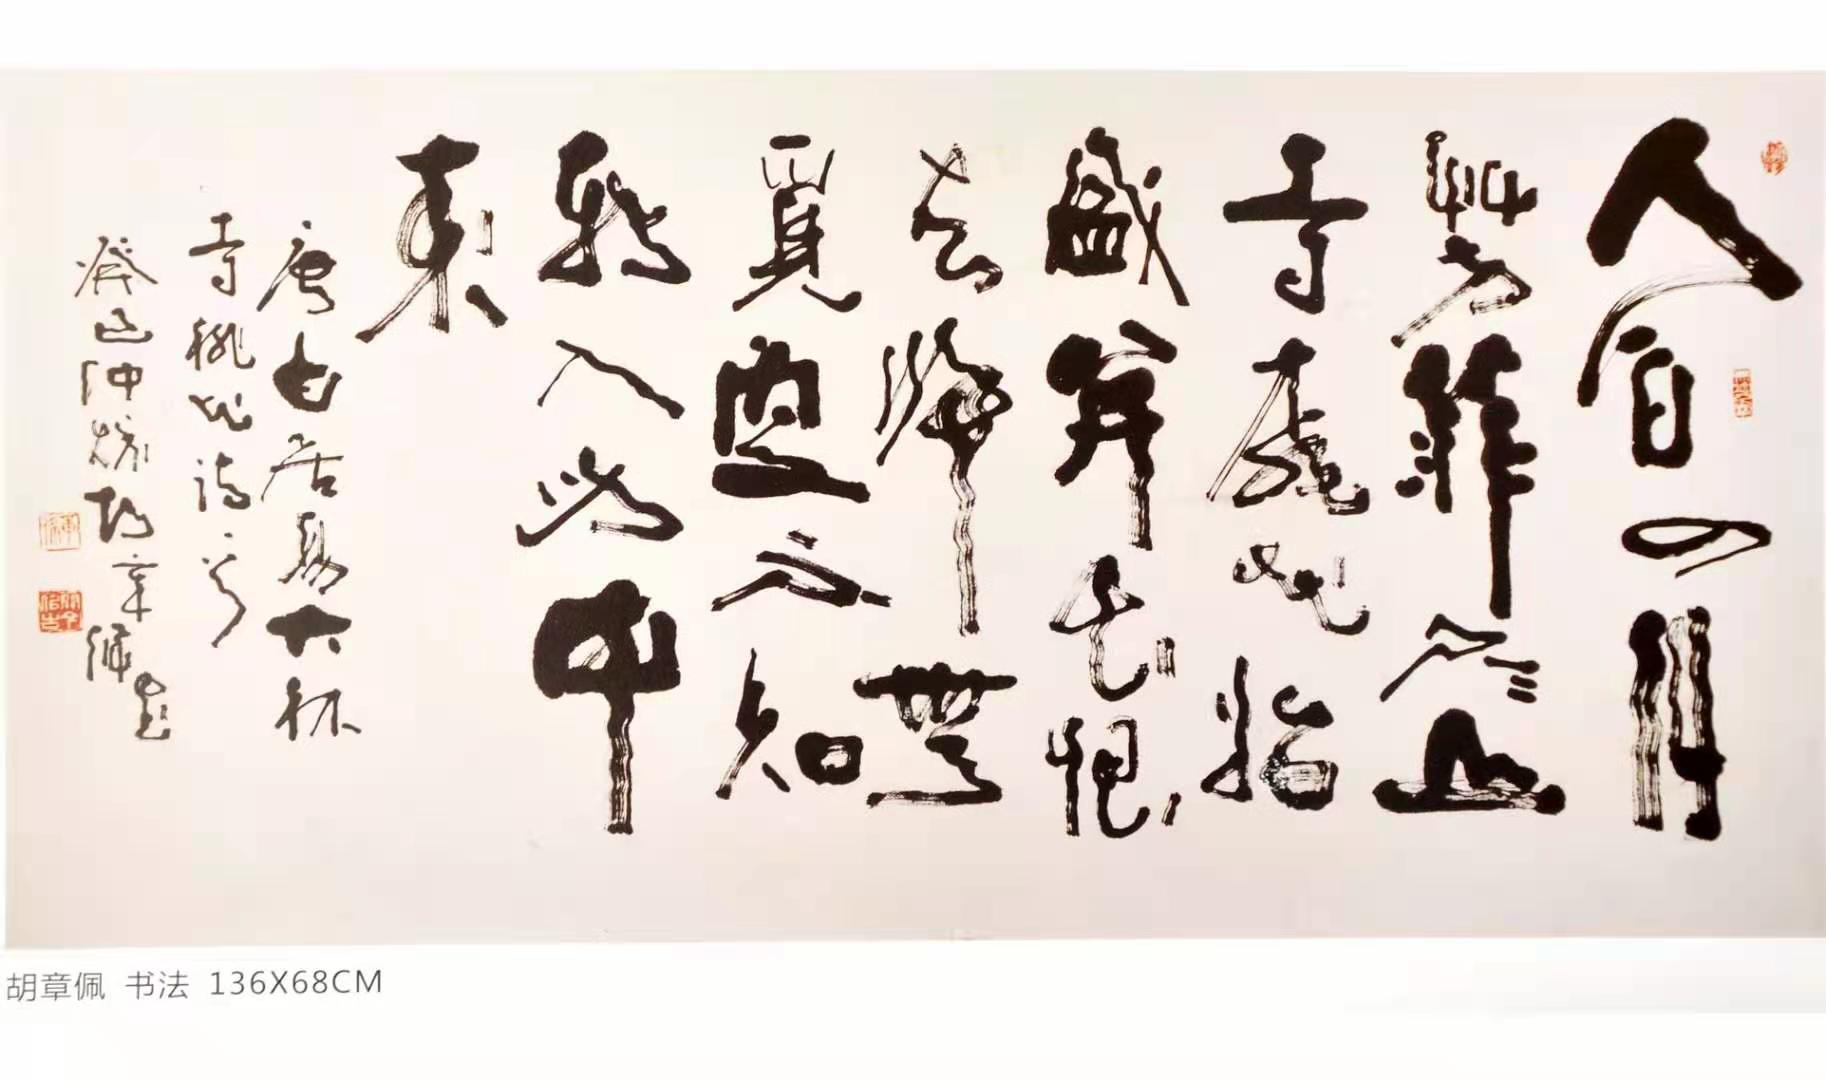 人間四月
芳菲尽山
寺桃花始
盛開長恨
春歸無
覓處不知
轉入此中
來
唐白居易大林
寺桃花詩一首
癸巳仲秋胡章佩書
胡章佩 书法 136X68CM